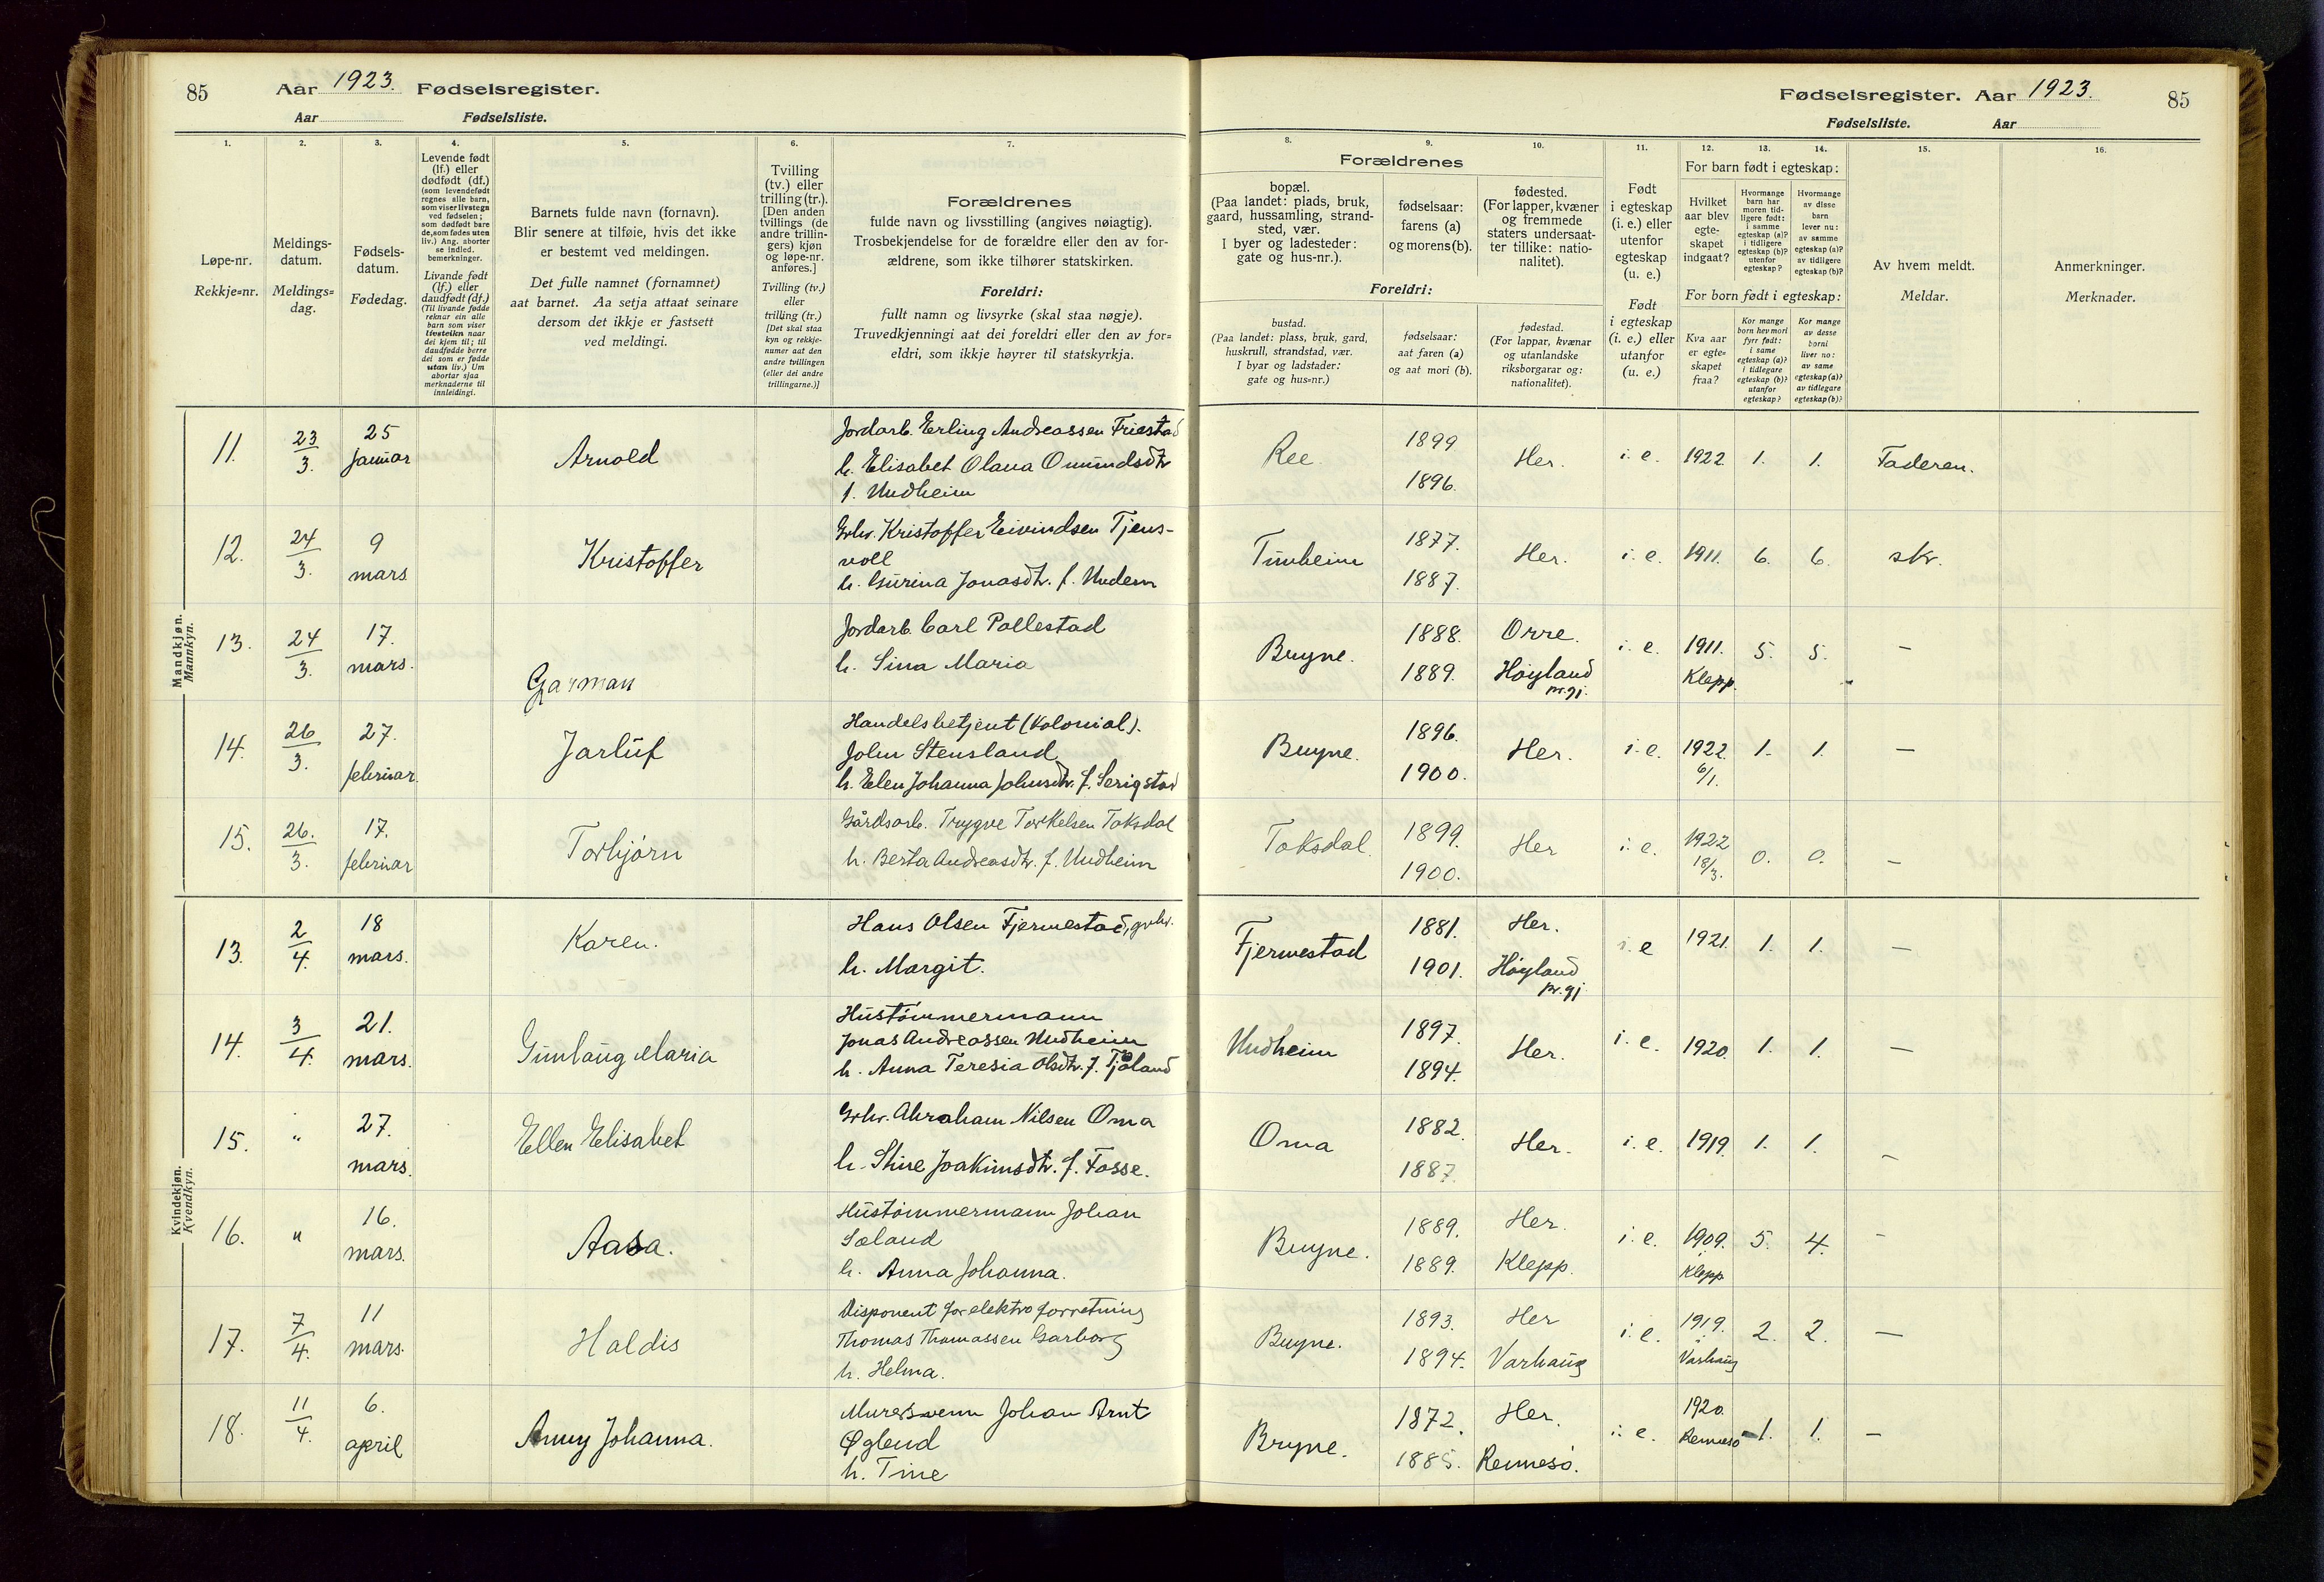 85 Aar 1923. Fødselsregister.
Aar Fødselsliste.
Fødselsregister. Aar 1923. 85
Fødselsliste. Aar
1. 2. 3. 4. 5. 6. 7. 8. 9. 10. 11. 12. 13. 14. 15. 16.
Løpe-nr.
Rekkje=nr.
Meldings-
datum.
Meldings=
dag.
Fødsels-
datum.
Fødedag.
Levende født
(lf.) eller
dødfødt (df.)
(som levendefødt
regnes alle barn,
som viser livstegn
ved fødselen;
som dødfødt bare
de, som fødes uten
liv.) Ang. aborter
se indled.
bemerkninger.
Livande født
(lf.) eller
daudfødt (df.)
(Til livande fødde
reknar ein alle
barn som viser
livsteikn naar
dei kjem til; til
daudfødde berre
dei som er fødde
utan liv.) Um
abortar sjaa
merknaderne til
innleidingi.
Barnets fulde navn (fornavn).
Blir senere at tilføie, hvis det ikke
er bestemt ved meldingen.
Det fulle namnet (fornamnet)
aat barnet. Aa setja attaat seinare
dersom det ikkje er fastsett
ved meldingi.
Tvilling
(tv.) eller
trilling (tr.).
[Den anden
tvillings (de
andre trillin-
gers) kjøn
og løpe-nr.
anføres.]
Tvilling (tv.)
eller
trilling (tr.)
[Det skal staa
kyn og rekkje-
numer aat den
andre tvillingen
(eller dei andre
trillingarne.)]
Forældrenes
fulde navn og livsstilling (angives nøiagtig).
Trosbekjendelse for de forældre eller den av for-
ældrene, som ikke tilhører statskirken.
Foreldri:
fullt namn og livsyrke (skal staa nøgje).
Truvedkjenningi aat dei foreldri eller den av for=
eldri, som ikkje høyrer til statskyrkja.
Forældrenes
bopæl.
(Paa landet: plads, bruk,
gaard, hussamling, strand-
sted, vær.
I byer og ladesteder:
gate og hus-nr.).
fødselsaar:
farens (a)
og morens (b).
fødested.
(For lapper, kvæner
og fremmede
staters undersaat-
ter tillike: natio-
nalitet).
Foreldri:
bustad.
(Paa landet: plass, bruk, gard,
huskrull, strandstad, vær.
I byar og ladstader:
gate og hus=nr.)
fødselsaar:
aat faren (a)
og aat mori (b).
fødestad.
(For lappar, kvænar
og utanlandske
riksborgarar og:
nationalitet).
Født
i egteskap
(i. e.) eller
utenfor
egteskap
(u. e.)
Født
i egteskap
(i. e.) eller
utanfor
(u. e.)
For barn født i egteskap:
Hvilket
aar blev
egte-
skapet
indgaat?
Hvormange
barn har
moren tid-
ligere født:
i samme
egteskap (a)?
i tidligere
egteskap (b)?
utenfor
egteskap?
Hvormange
av disse
barn
lever nu:
av samme
egteskap (a)?
av tidligere
egteskap (b)?
For born født i egteskap:
Kva aar
er egte=
skapet
fraa?
Kor mange
born hev mori
fyrr født:
i same
egteskap (a)?
i tidlegare
egteskap (b)?
utanfor
egteskap?
Kor mange
av desse
borni
liver no:
av same
egteskap (a)?
av tidlegare
egteskap (b)?
Av hvem meldt.
Meldar.
Anmerkninger.
Merknader.
Mandkjøn.
Mannkyn.
11. 23/3. 25 januar Arnold
Jordarb. Erling Andreassen Friestad
h. Elisabet Olava Omundsdtr
f. Undheim
Ree. 1899 1896. Her. i. e. 1922. 1. 1. Faderen.
12. 24/3. 9 mars Kristoffer
Grbr. Kristoffer Eivindsen Tjens-
voll
h. Gurina Jonasdtr. f. Undem
Tunheim 1877. 1887. Her. i. e. 1911. 6. 6. skr.
13. 24/3. 17. mars. Garman
Jordarb. Carl Pollestad
h. Sina Maria
Bryne. 1888. 1889. Orre. Høyland pr.gj. i. e. 1911. Klepp. 5. 5. —
14. 26/3. 27. februar. Jarluf
Handelsbetjent (Kolonial).
John Stensland
h. Elen Johanna Johnsdtr. f. Serigstad
Bryne. 1896. 1900. Her. i. e. 1922. 6/1. 1. 1. —
15. 26./3. 17. februar Torbjørn
Gårdsarb. Trygve Torkelsen Taksdal
h. Berta Andreasdtr. f. Undheim
Taksdal. 1899. 1900. Her i. e. 1922 18/3. 0. 0. —
Kvindekjøn.
Kvendkyn.
13. 2/4. 18 mars. Karen.
Hans Olsen Fjermestad, grbr.
h. Margit.
Fjermestad 1881. 1901. Her. Høyland pr.gj i. e 1921. 1. 1. —
14. 3/4. 21. mars. Gunlaug Maria
Hustømmermann
Jonas Andreassen Undheim
h. Anna Teresia Olsdtr. f. Tjåland
Undheim 1897. 1894. Her. i. e. 1920. 1. 1. —
15. " 27. mars. Ellen Elisabet
Grbr. Abraham Nilsen Oma
h. Stine Joakimsdtr. f. Fosse.
Oma 1882. 1887. Her. i. e. 1919. 1. 1. —
16. " 16. mars. Aasa.
Hustømmermann Johan
Sæland
h. Anna Johanna.
Bryne. 1889. 1889. Her. Klepp. i. e. 1909. i Klepp 5. 4. -
17. 7/4. 11 mars. Haldis
Disponent for elektro forretning
Thomas Thomassen Garborg
h. Helma.
Bryne. 1893. 1894. Her Varhaug i. e. 1919. i Varhaug 2. 2. —
18. 11/4. 6. april Anny Johanna.
Murersvenn Johan Arnt
Øglend
h. Tine
Bryne. 1872. 1885. Her. Rennesø. i. e. 1920. Rennesø 1. 1. —